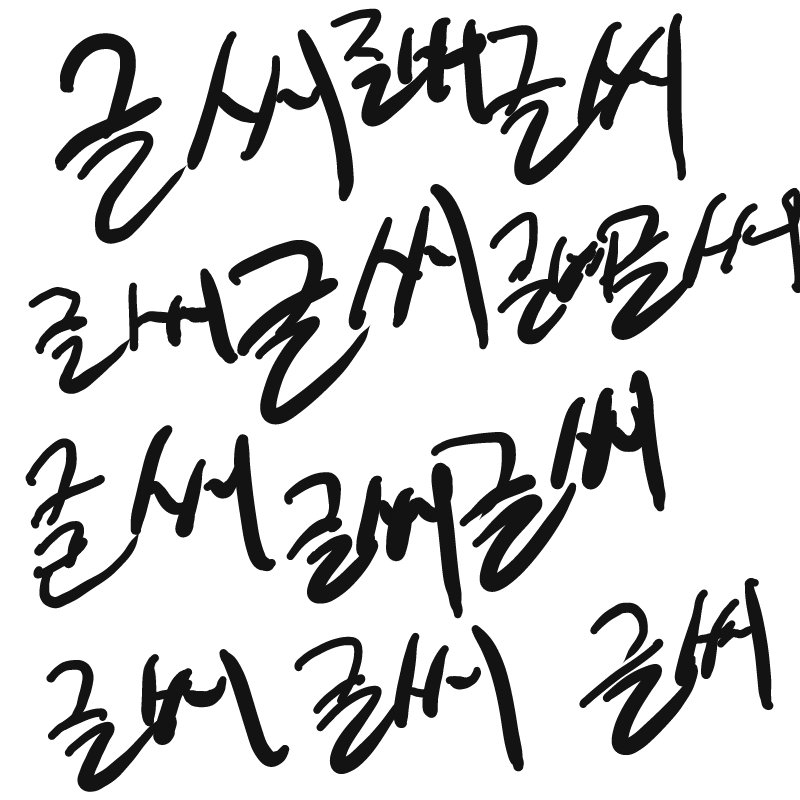 글씨 글씨 글씨
글씨 글씨 글씨 글씨
글씨 글씨 글씨
글씨 글씨 글씨